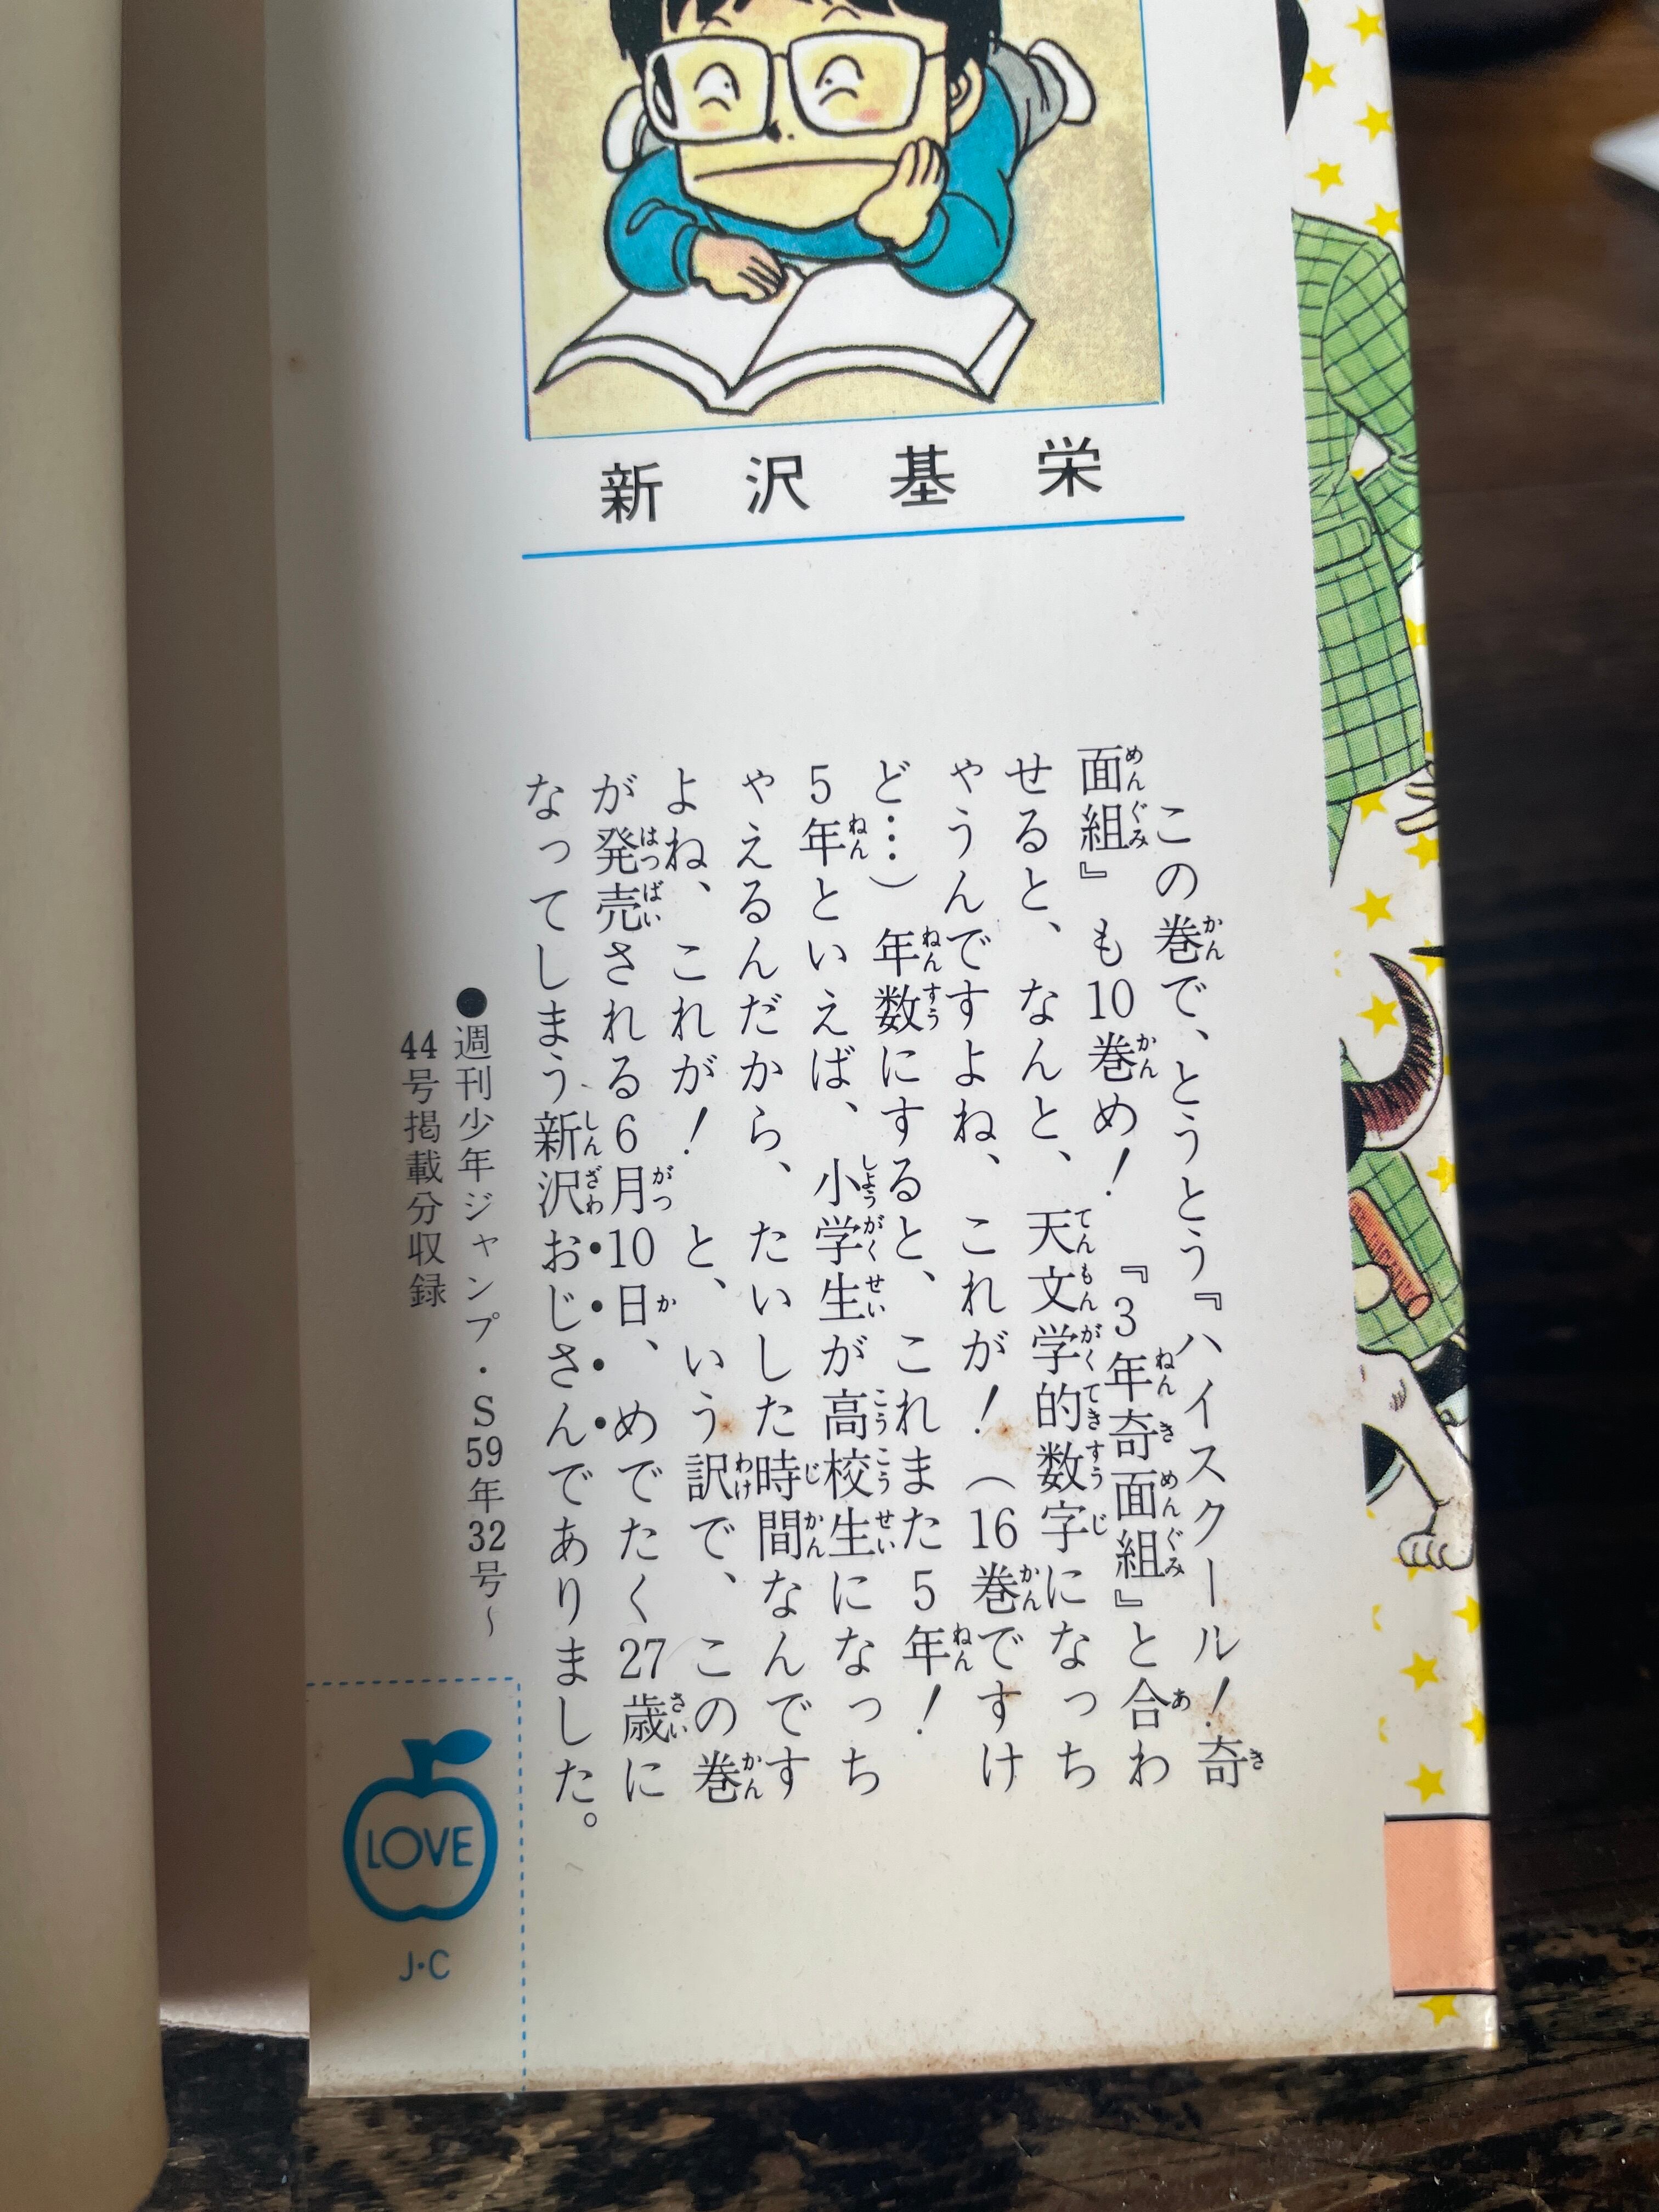 新沢基栄
この巻で、とうとう『ハイスクール！奇
面組』も10巻め！『3年奇面組』と合わ
せると、なんと、天文学的数字になっち
ゃうんですよね、これが！（16巻ですけ
ど…）年数にすると、これまた5年！
5年といえば、小学生が高校生になっち
ゃえるんだから、たいした時間なんです
よね、これが！と、いう訳で、この巻
が発売される6月10日、めでたく27歳に
なってしまう、新沢おじさんでありました。
●週刊少年ジャンプ・S59年32号～
44号掲載分収録
LOVE
J・C